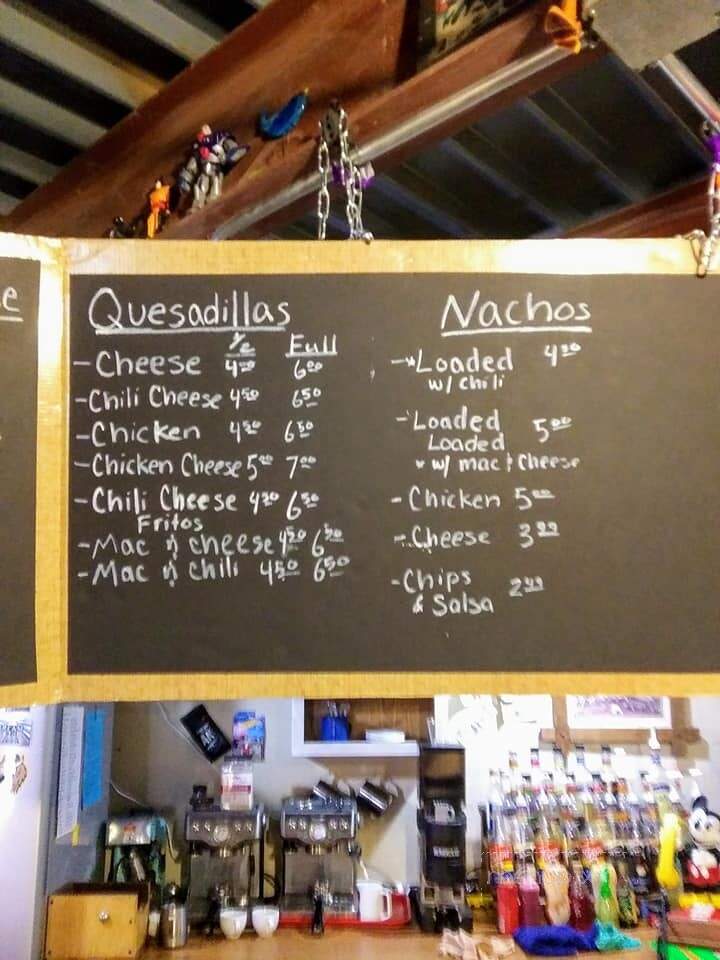 e
Quesadillas
1/2 Full
- Cheese 6 00
- Chili Cheese 4 50 6 50
- Chicken 4 50 6 50
- Chicken Cheese 5 00 7 00
- Chili Cheese 6 50
Fritos
- Mac n cheese 4 50 6 50
- Mac n chili 4 50 6 50
Nachos
- Loaded
w/ chili
- Loaded 5 00
Loaded
w/ mac & Cheese
- Chicken 5 00
- Cheese
- Chips
& Salsa